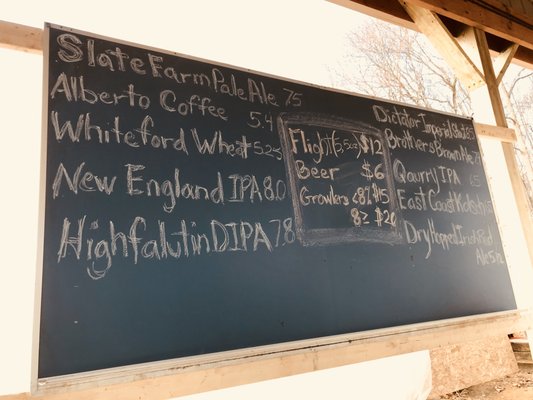 Slate Farm Pale Ale 7.5
Alberto Coffee 5.4
Whiteford Wheat 5.25
New England IPA 8.0
Highfalutin DIPA 7.8
Flight (5,5oz) $12
Beer $6
Growlers <8% $15
8≥ $20
Dictator Imperial Stout 8.5
Brothers Brown Ale
Qaurry IPA 6.5
East Coast Kolsh
Dry Hopped Irish Red
Ale